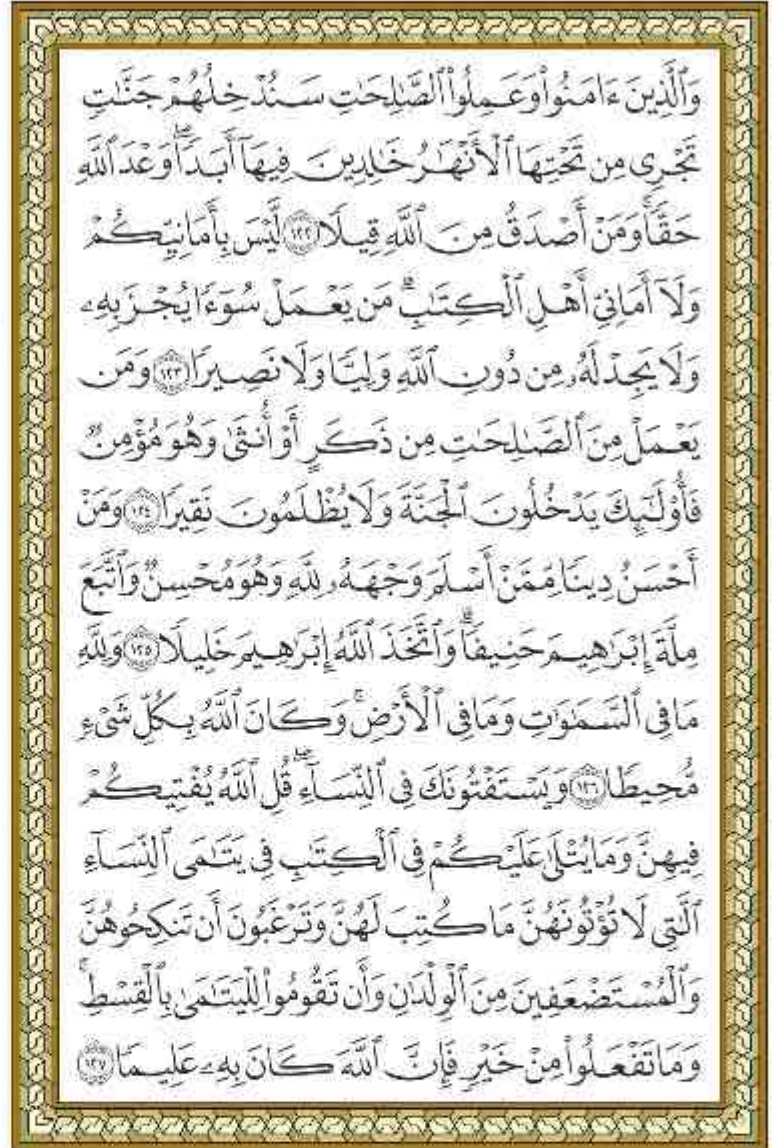 وَٱلَّذِينَ ءَامَنُوا۟ وَعَمِلُوا۟ ٱلصَّـٰلِحَـٰتِ سَنُدْخِلُهُمْ جَنَّـٰتٍ
تَجْرِى مِن تَحْتِهَا ٱلْأَنْهَـٰرُ خَـٰلِدِينَ فِيهَآ أَبَدًا ۖ وَعْدَ ٱللَّهِ
حَقًّا ۚ وَمَنْ أَصْدَقُ مِنَ ٱللَّهِ قِيلًا ١٢٢ لَّيْسَ بِأَمَانِيِّكُمْ
وَلَآ أَمَانِىِّ أَهْلِ ٱلْكِتَـٰبِ ۗ مَن يَعْمَلْ سُوٓءًا يُجْزَ بِهِۦ
وَلَا يَجِدْ لَهُۥ مِن دُونِ ٱللَّهِ وَلِيًّا وَلَا نَصِيرًا ١٢٣ وَمَن
يَعْمَلْ مِنَ ٱلصَّـٰلِحَـٰتِ مِن ذَكَرٍ أَوْ أُنثَىٰ وَهُوَ مُؤْمِنٌ
فَأُو۟لَـٰٓئِكَ يَدْخُلُونَ ٱلْجَنَّةَ وَلَا يُظْلَمُونَ نَقِيرًا ١٢٤ وَمَنْ
أَحْسَنُ دِينًا مِّمَّنْ أَسْلَمَ وَجْهَهُۥ لِلَّهِ وَهُوَ مُحْسِنٌ وَٱتَّبَعَ
مِلَّةَ إِبْرَٰهِيمَ حَنِيفًا ۗ وَٱتَّخَذَ ٱللَّهُ إِبْرَٰهِيمَ خَلِيلًا ١٢٥ وَلِلَّهِ
مَا فِى ٱلسَّمَـٰوَٰتِ وَمَا فِى ٱلْأَرْضِ ۚ وَكَانَ ٱللَّهُ بِكُلِّ شَىْءٍ
مُّحِيطًا ١٢٦ وَيَسْتَفْتُونَكَ فِى ٱلنِّسَآءِ ۖ قُلِ ٱللَّهُ يُفْتِيكُمْ
فِيهِنَّ وَمَا يُتْلَىٰ عَلَيْكُمْ فِى ٱلْكِتَـٰبِ فِى يَتَـٰمَى ٱلنِّسَآءِ
ٱلَّـٰتِى لَا تُؤْتُونَهُنَّ مَا كُتِبَ لَهُنَّ وَتَرْغَبُونَ أَن تَنكِحُوهُنَّ
وَٱلْمُسْتَضْعَفِينَ مِنَ ٱلْوِلْدَٰنِ وَأَن تَقُومُوا۟ لِلْيَتَـٰمَىٰ بِٱلْقِسْطِ ۚ
وَمَا تَفْعَلُوا۟ مِنْ خَيْرٍ فَإِنَّ ٱللَّهَ كَانَ بِهِۦ عَلِيمًا ١٢٧